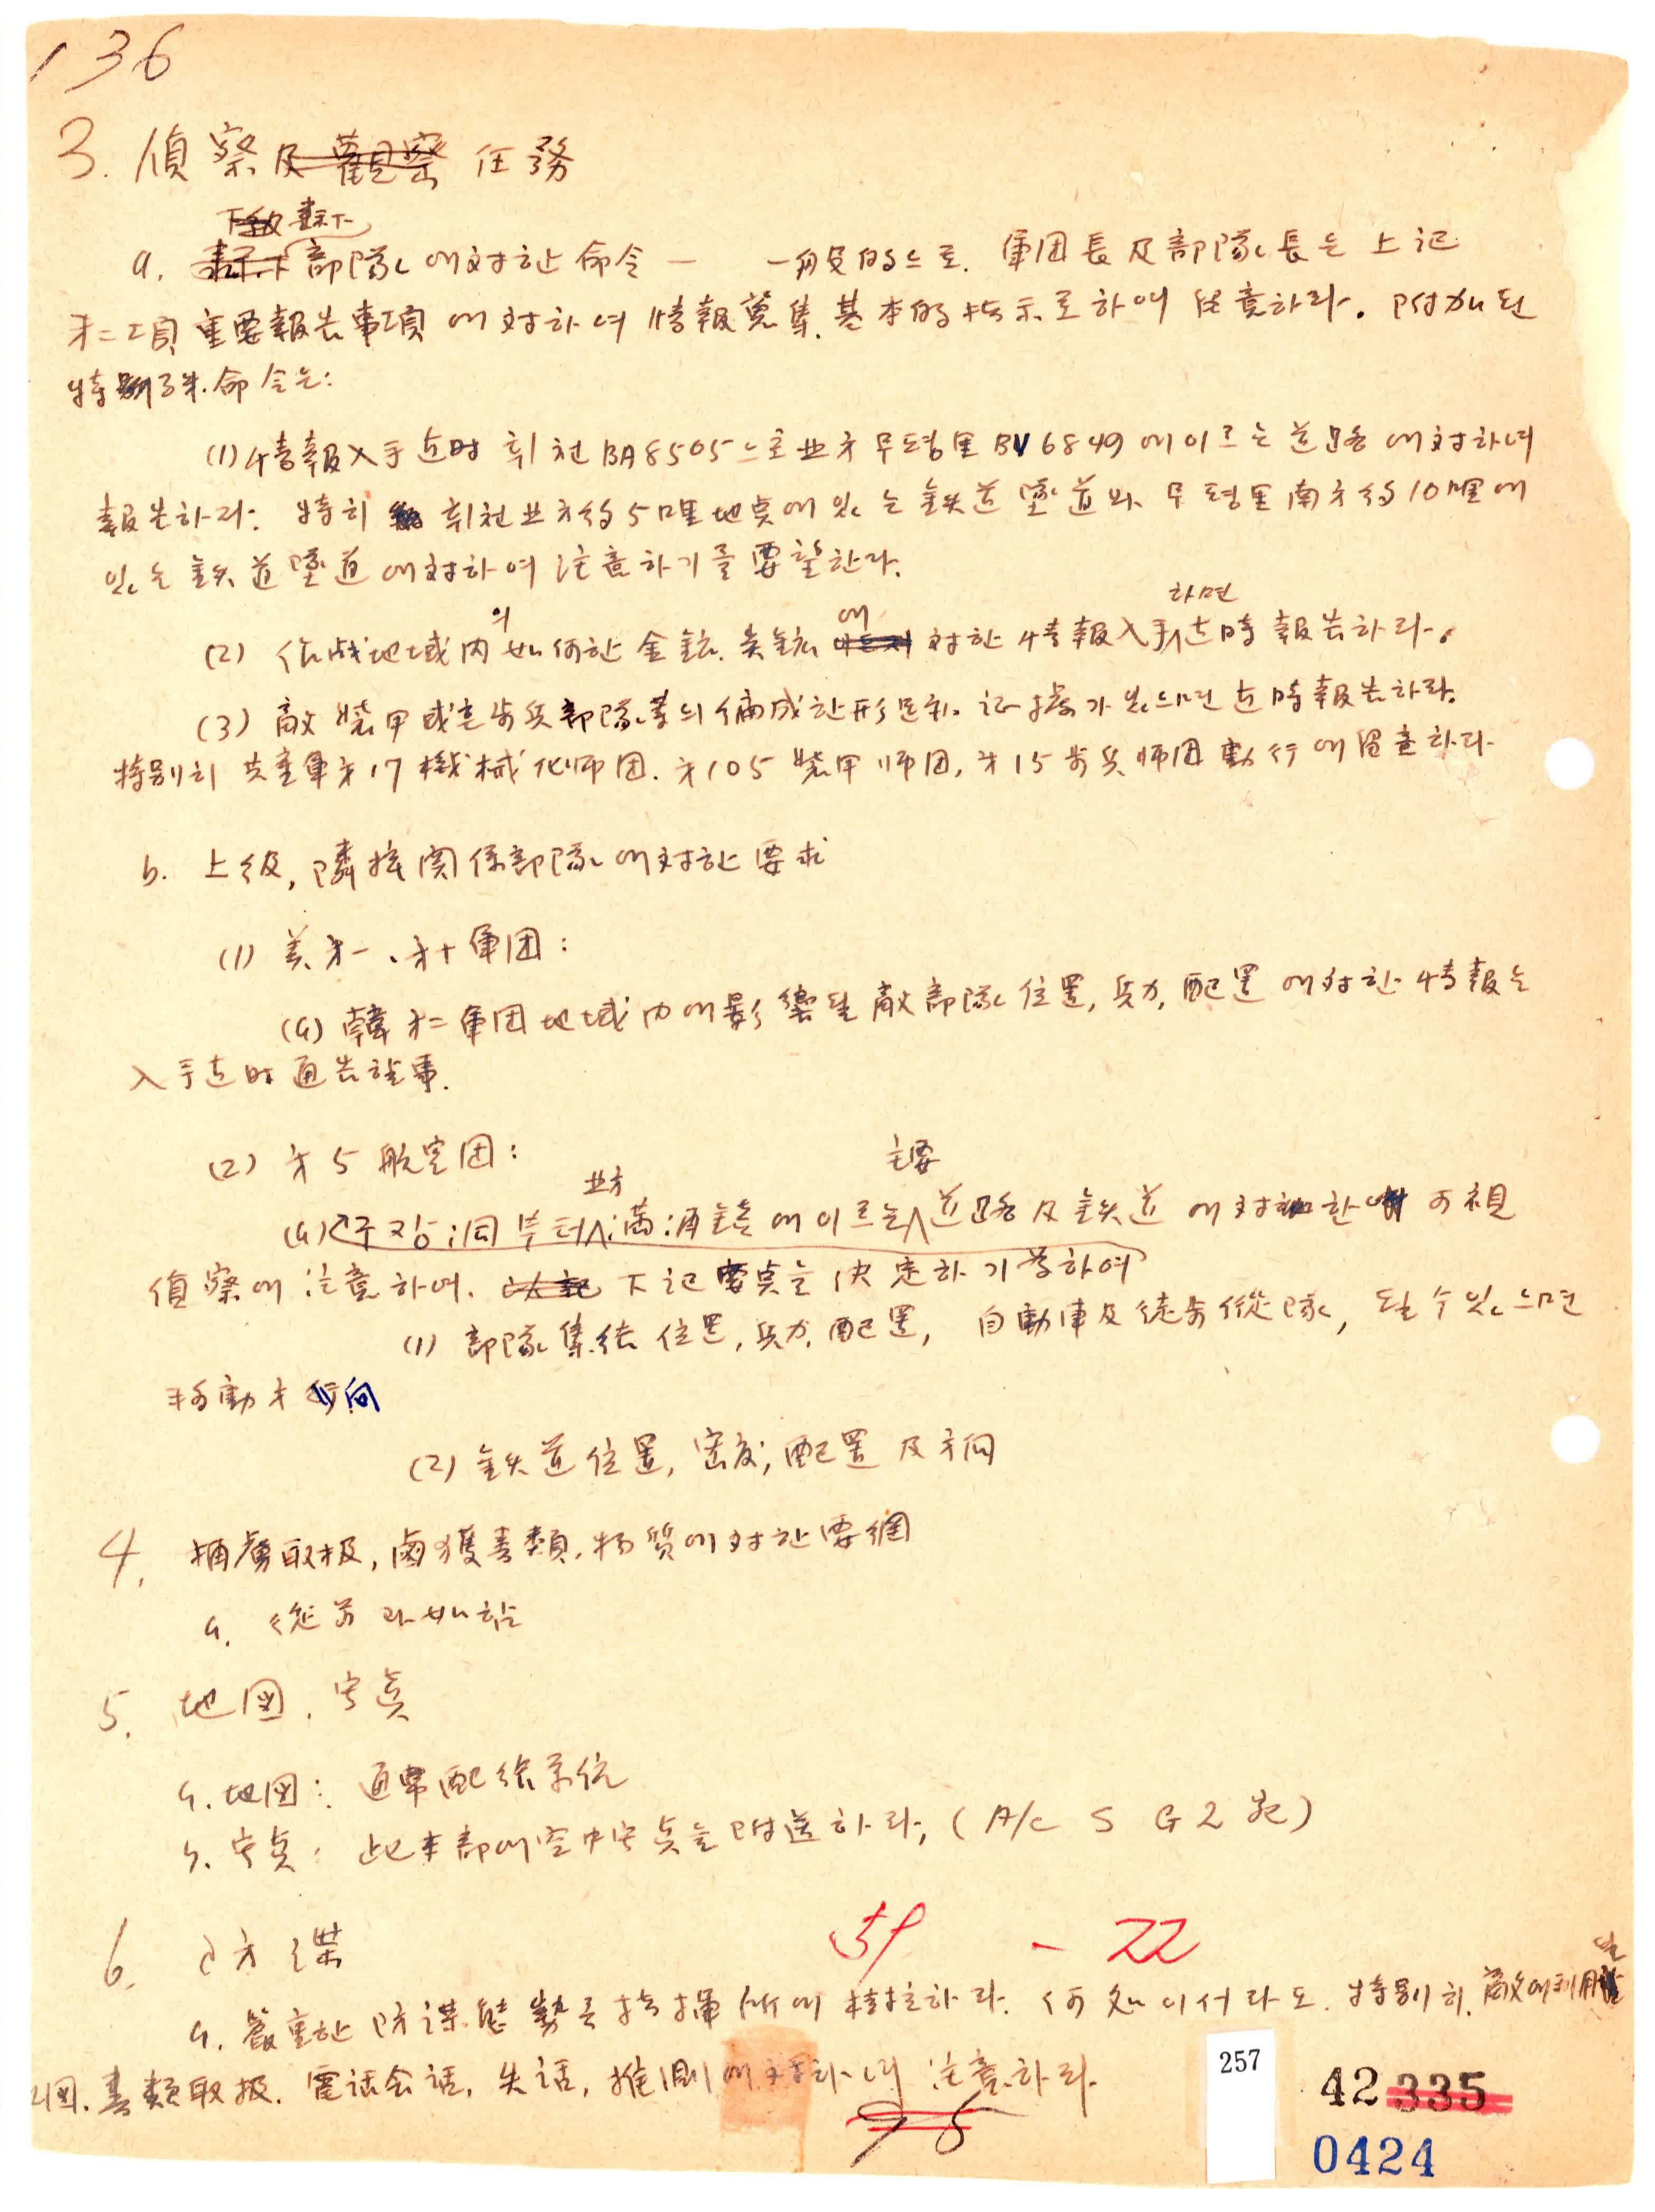 136
3. 偵察及觀察 任務
下級 隸下
a. 隸下 部隊에 対한 命令 — 一般的으로. 軍団長 及 部隊長은 上記
才二項 重要報告事項에 対하여 情報蒐集. 基本的 指示로 하여 任意하라. 附加된
特別 命令은:
(1) 情報入手 即時 희천 BA8505으로 北方 무평里 BV6849에 이르는 道路에 対하여
報告하라. 特히 희천 北方 約 5哩 地点에 있는 鉄道 墜道와 무평里 南方 約 10哩에
있는 鉄道 墜道에 対하여 注意하기를 要望한다.
의 에 하면
(2) 作战地域内 如何한 金鉱. 炭鉱 対한 情報入手 即時 報告하라.
(3) 敵 装甲 或은 歩兵部隊等의 编成한 形跡. 証據가 있으면 即時 報告하라.
特別히 共産軍 才17 機械化师団. 才105 装甲师团, 才15 歩兵师团 動行에 留意하라
b. 上級, 隣接 関係部隊에 対한 要求
(1) 美 才一、才十軍団:
(a) 韓 才二軍団 地域内에 影響될 敵部隊 位置, 兵力, 配置에 対한 情報는
入手 即时 通告할 事.
(2) 才5 航空団:
北方 主要
(a) 구장洞부터 滿浦鎮에 이르는 道路 及 鉄道에 対한 可視
偵察에 注意하여. 下記 要点을 決定하기 爲하여
(1) 部隊集結 位置, 兵力, 配置, 自動車 及 徒歩 縱隊, 될 수 있으면
移動方向
(2) 鉄道位置, 密度, 配置 及 方向
4. 捕虜取扱, 鹵獲書類. 物質에 対한 要綱
a. 従前과 如함
5. 地図. 写真
a. 地図: 通常配給系统
b. 写真: 此 本部에 空中写真을 附送하라, (A/c S G2 宛)
6. 防諜
59 - 22
a. 嚴重한 防諜態勢를 指揮所에 樹立하라. 何処이서라도. 特別히. 敵에 利用될
地図. 書類取扱. 電話会話, 失話, 推測에 対하여 注意하라.
95
257
42 335
0424